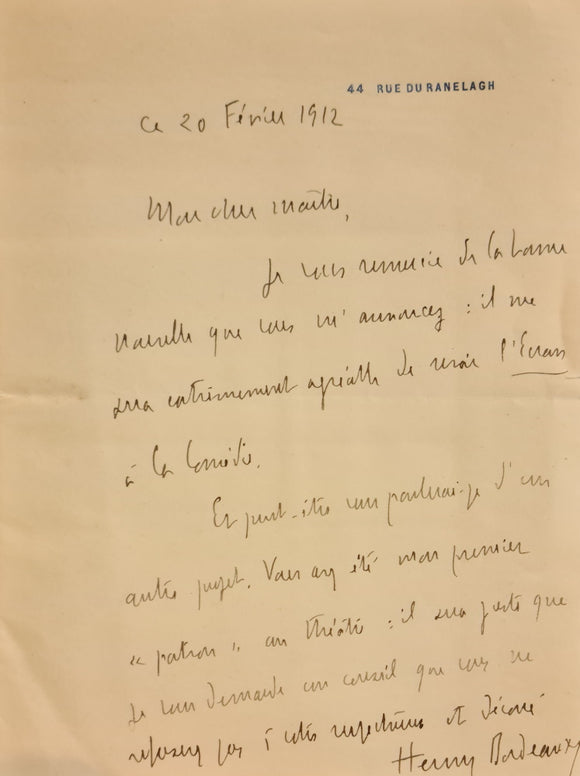 44 RUE DU RANELAGH
Ce 20 Février 1912
Mon cher maître,
Je vous remercie de la bonne
nouvelle que vous m'annoncez : il me
sera extrêmement agréable de revoir l'Ecran
à la Comédie.
Et peut-être vous parlerai-je d'un
autre projet. Vous avez été mon premier
« patron » au théâtre : il sera juste que
je vous demande un conseil que vous ne
refuserez pas à votre respectueux et dévoué
Henry Bordeaux